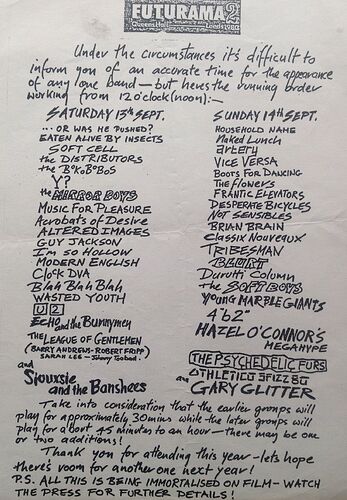 FUTURAMA 2
Queens Hall Leeds 1980
Under the circumstances it's difficult to
inform you of an accurate time for the appearance
of any one band — but heres the running order
working from 12 o'clock (noon):-
SATURDAY 13th SEPT.
... OR WAS HE PUSHED?
EATEN ALIVE BY INSECTS
SOFT CELL
the DISTRIBUTORS
the BoKoBoBoS
Y?
the MIRROR BOYS
MUSIC FOR PLEASURE
Acrobats of Desire
ALTERED IMAGES
GUY JACKSON
I'm so HOLLOW
MODERN ENGLISH
Clock DVA
Blah Blah Blah
WASTED YOUTH
U2
ECHO and the Bunnymen
THE LEAGUE OF GENTLEMEN
(BARRY ANDREWS - ROBERT FRIPP)
SARAH LEE - Johnny Toobad.
and
Siouxsie and the Banshees
SUNDAY 14th SEPT.
HOUSEHOLD NAME
Naked Lunch
artery
VICE VERSA
BOOTS FOR DANCING
THE flowers
FRANTIC ELEVATORS
DESPERATE BICYCLES
NOT SENSIBLES
BRIAN BRAIN
Classix Nouveaux
TRIBESMAN
BLURT
Durutti Column
the SOFT BOYS
YOUNG MARBLE GIANTS
4'be2"
HAZEL O'CONNOR'S
MEGAHYPE
THE PSYCHEDELIC FURS
ATHLETICO SPIZZ 80
and GARY GLITTER
Take into consideration that the earlier groups will
play for approximately 30 mins while the later groups will
play for about 45 minutes to an hour — there may be one
or two additions!
Thank you for attending this year - lets hope
there's room for another one next year!
P.S. ALL THIS IS BEING IMMORTALISED ON FILM - WATCH
THE PRESS FOR FURTHER DETAILS!